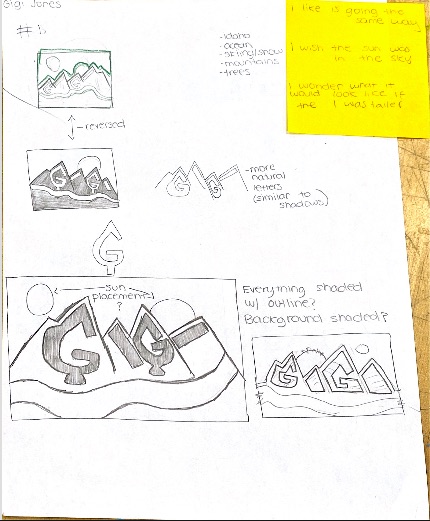 Gigi Jones
#1.
-idaho
-ocean
-skiing/snow
-mountains
-trees
I like is going the
same way.
I wish the sun was
in the sky
I wonder what it
would look like if
the I was taller
-reversed
-more
natural
letters
(similar to
shadows)
sun
placement
?
Everything shaded
w/ outline?
Background shaded?
GIGI